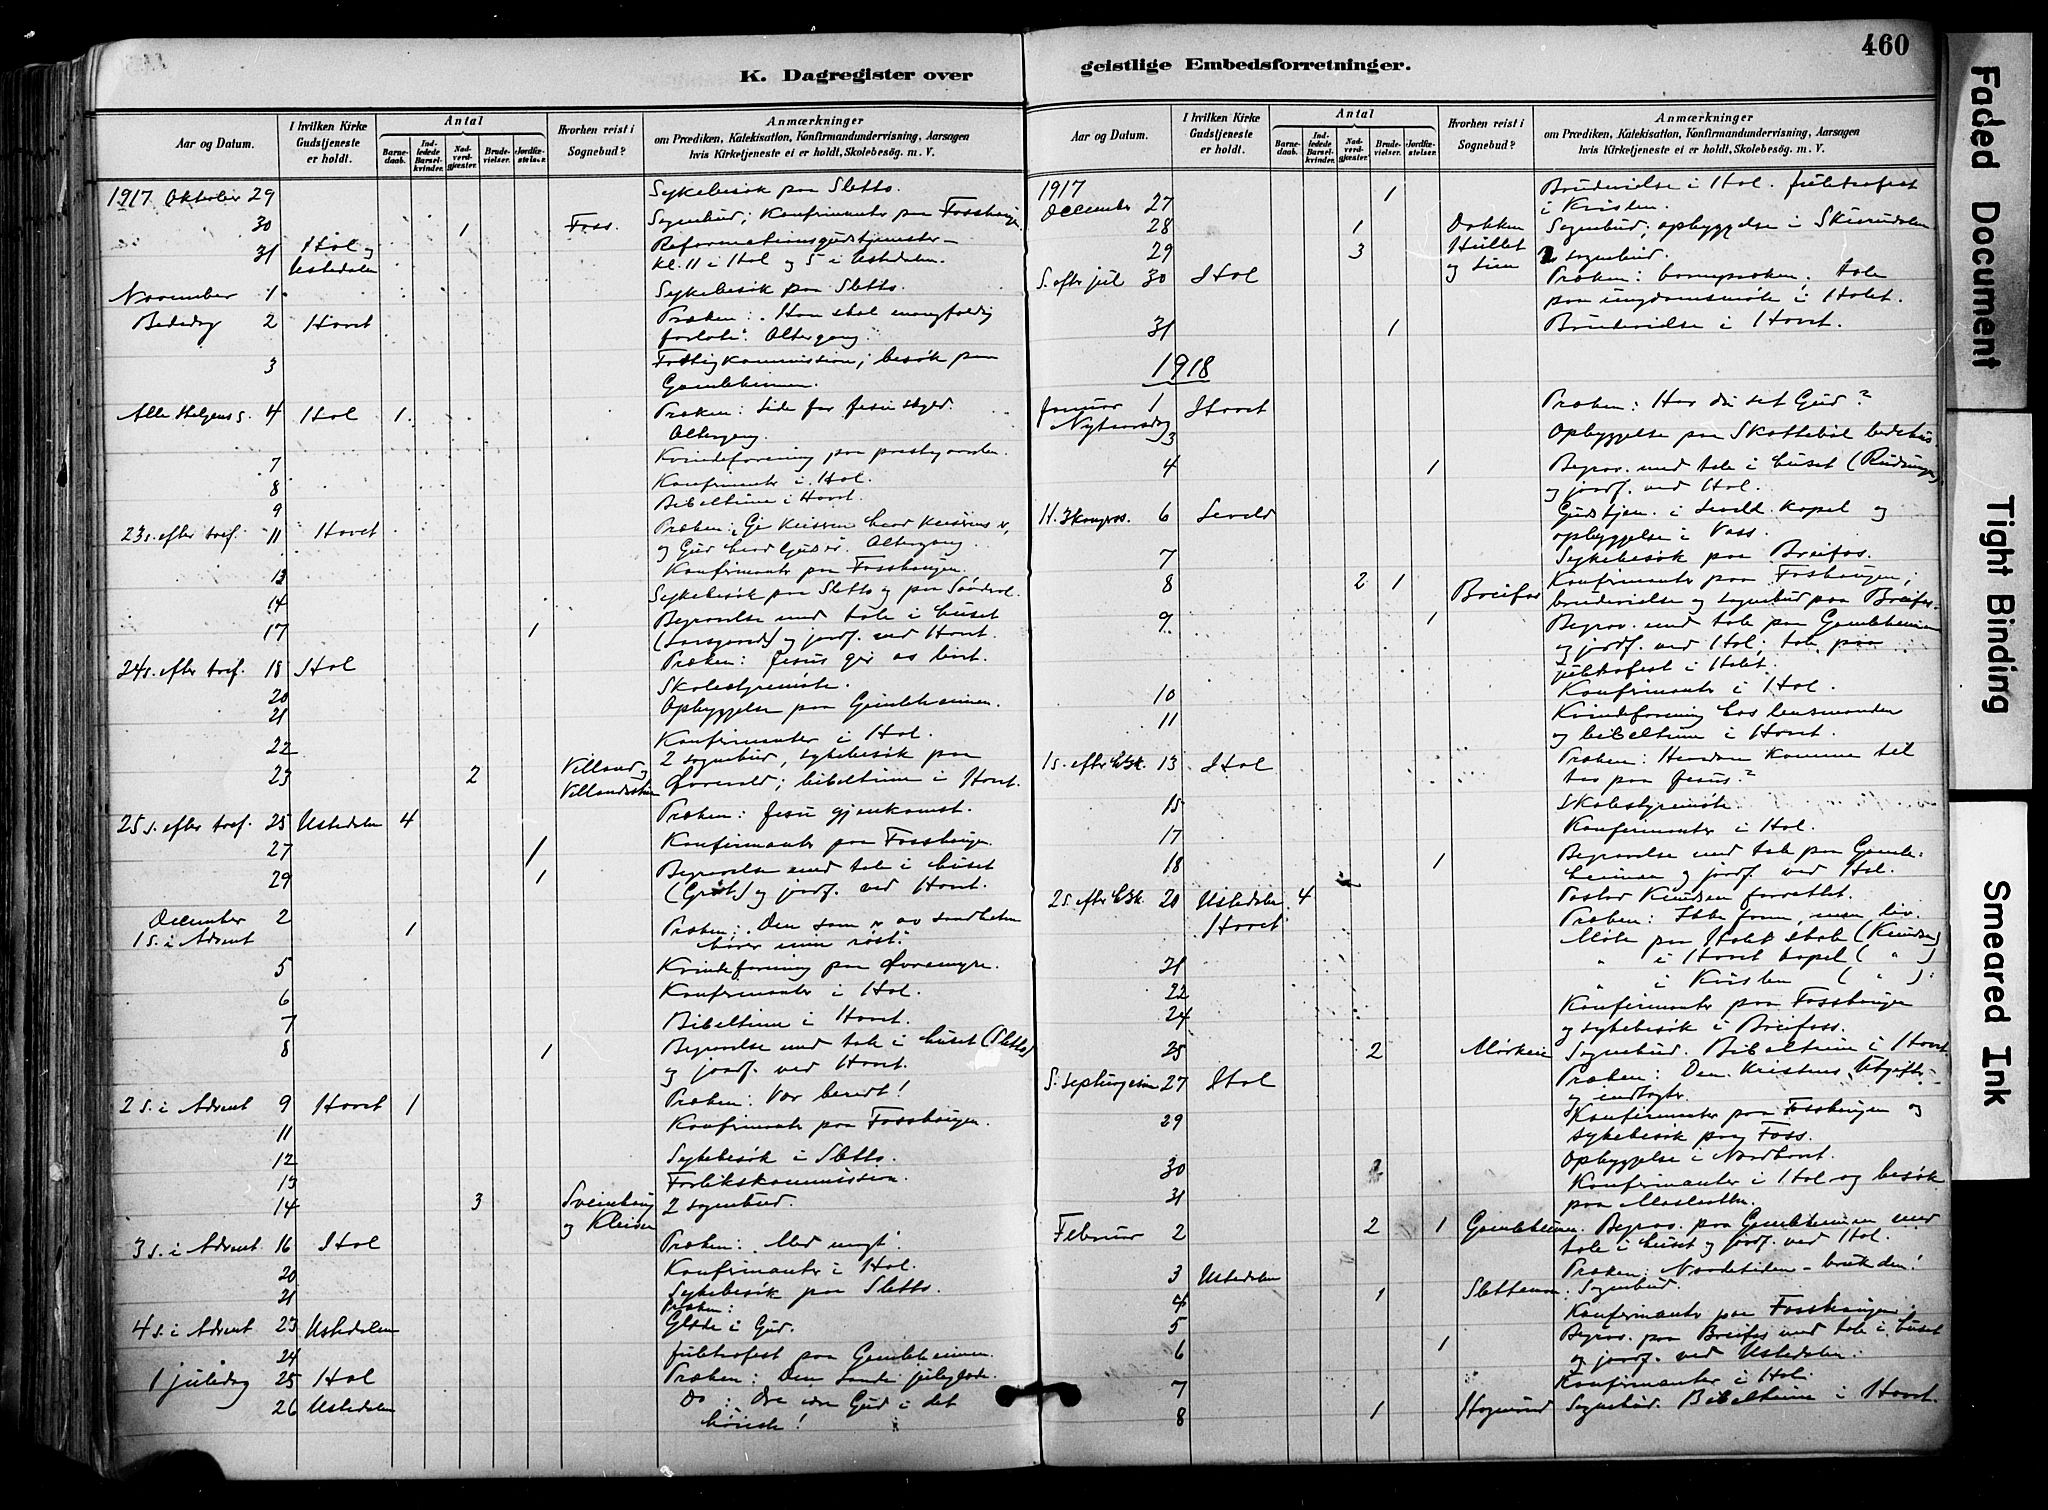 K. Dagregister over
Aar og Datum.
I hvilken Kirke Gudstjeneste er holdt.
Antal
Barnedaab.
Indledede Barselkvinder.
Nadverdgjester.
Brudevielser.
Jordfæstelser.
Hvorhen reist i Sognebud?
Anmærkninger
om Prædiken, Katekisation, Konfirmandundervisning, Aarsagen
hvis Kirketjeneste ei er holdt, Skolebesøg. m. V.
1917 Oktober 29 Sykebesök paa Sletto.
30 1 Foss. Sognebud; Konfirmanter paa Fosshaugen
31 Hol og Ustedalen Reformationsgudstjenester
kl. 11 i Hol og 5 i Ustedalen.
November 1 Sykebesök paa Sletto.
Bededag 2 Hovet Præken: Han skal mangfoldig
forlate. Altergang.
3 besök paa
Gamleheimen.
Alle Helgens s. 4 Hol 1 Præken: Lide for Jesu skyld.
Altergang.
7 Kvindeforening paa prestegaarden.
8 Konfirmanter i Hol.
9 Bibeltime i Hovet.
23 s. efter tref. 11 Hovet Præken: Gi Keiseren hvad Keiserens er,
og Gud hvad Guds er. Altergang.
13 Konfirmanter paa Fosshaugen.
14 Sykebesök paa Sletto og paa
17 1 Begravelse med tale i huset
og jordf. ved Hovet.
24 s. efter tref. 18 Hol Præken: Jesus gir os livet.
20 Skolestyremöte.
21 Opbyggelse paa Gamleheimen.
22 Konfirmanter i Hol.
23 2 Villand og Villandstuen 2 sognebud, sykebesök paa
bibeltime i Hovet.
25 s. efter tref. 25 Ustedalen 4 Præken: Jesu gjenkomst.
27 1 Konfirmanter paa Fosshaugen.
29 1 Begravelse med tale i huset
og jordf. ved Hovet.
December 2 1 Præken: Den som er av sandheten
1 s. i Advent hører min røst.
5 Kvindeforening paa Øvremyre.
6 Konfirmanter i Hol.
7 Bibeltime i Hovet.
8 1 Begravelse med tale i huset (Sletto)
og jordf. ved Hovet.
2 s. i Advent 9 Hovet 1 Præken: Vær beredt!
11 Konfirmanter paa Fosshaugen.
12 Sykebesök i Sletto.
13 Forlikskommission.
14 3 Sveinhaug og Kleiven 2 sognebud.
3 s. i Advent 16 Hol Præken: Med
20 Konfirmanter i Hol.
21 Sykebesök paa Sletto.
Præken:
4 s. i Advent 23 Ustedalen Glæde i Gud.
24 Juletrefest paa Gamleheimen.
1 juledag 25 Hol Præken: Den sande juleglæde.
26 Ustedalen Do: Ære være Gud i det
höieste!
460
geistlige Embedsforretninger.
Aar og Datum.
I hvilken Kirke Gudstjeneste er holdt.
Antal
Barnedaab.
Indledede Barselkvinder.
Nadverdgjester.
Brudevielser.
Jordfæstelser.
Hvorhen reist i Sognebud?
Anmærkninger
om Prædiken, Katekisation, Konfirmandundervisning, Aarsagen
hvis Kirketjeneste ei er holdt, Skolebesøg. m. V.
1917
December 27 1 Brudevielse i Hol. Juletrefest
i Kvisten.
28 1 Dokken Sognebud; opbyggelse i Skurudalen
29 3 Hullet og Lien 2 sognebud.
S. efter jul 30 Hol Præken: barnepræken. Tale
paa ungdomsmöte i Holet.
31 1 Brudevielse i Hovet.
1918
Januar 1 Hovet Præken: Har du set Gud?
Nytaarsdag
3 Opbyggelse paa Skottebøl bedehus.
4 1 Begrav. med tale i huset
og jordf. ved Hol.
H. 3 kongers. 6 Leveld Gudstjen. i Leveld kapel og
opbyggelse i Vass.
7 Sykebesök paa Breifos.
8 2 1 Breifos Konfirmanter paa Foshaugen;
brudevielse og sognebud paa Breifos.
9 1 Begrav. med tale paa Gamleheimen
og jordf. ved Hol; tale paa
juletrefest i Holet.
10 Konfirmanter i Hol.
11 Kvindeforening hos lensmanden
og bibeltime i Hovet.
1 s. efter H3k. 13 Hol Præken: Hvordan komme til
tro paa Jesus?
15 Skolestyremöte
17 Konfirmanter i Hol.
18 1 Begravelse med tale paa Gamleheimen
og jordf. ved Hol.
2 s. efter H3k. 20 Ustedalen 4 Pastor Knudsen forrettet.
Hovet Præken: Ikke form, men liv.
Möte paa Holet skole (Knudsen)
21 " i Hovet kapel ( " )
22 " i Kvisten ( " )
24 Konfirmanter paa Fosshaugen
og sykebesök i Breifoss.
25 2 Mørkeie Sognebud. Bibeltime i Hovet.
S. septuagesima 27 Hol Præken: Den kristens utgifter
og indtægter.
29 Konfirmanter paa Fosshaugen og
sykebesök paa Foss.
30 Opbyggelse i Nordhovet.
31 Konfirmanter i Hol og besök
paa
Februar 2 2 1 Gamleheimen. Begrav. paa Gamleheimen med
tale i huset og jordf. ved Hol.
3 Ustedalen Præken: Naadetiden – bruk den!
4 1 Slettemo. Sognebud.
5 Konfirmanter paa Fosshaugen.
6 1 Begrav. paa Breifos med tale i huset
og jordf. ved Ustedalen.
7 Konfirmanter i Hol.
8 1 Sognebud. Bibeltime i Hovet.
Faded Document
Tight Binding
Smeared Ink